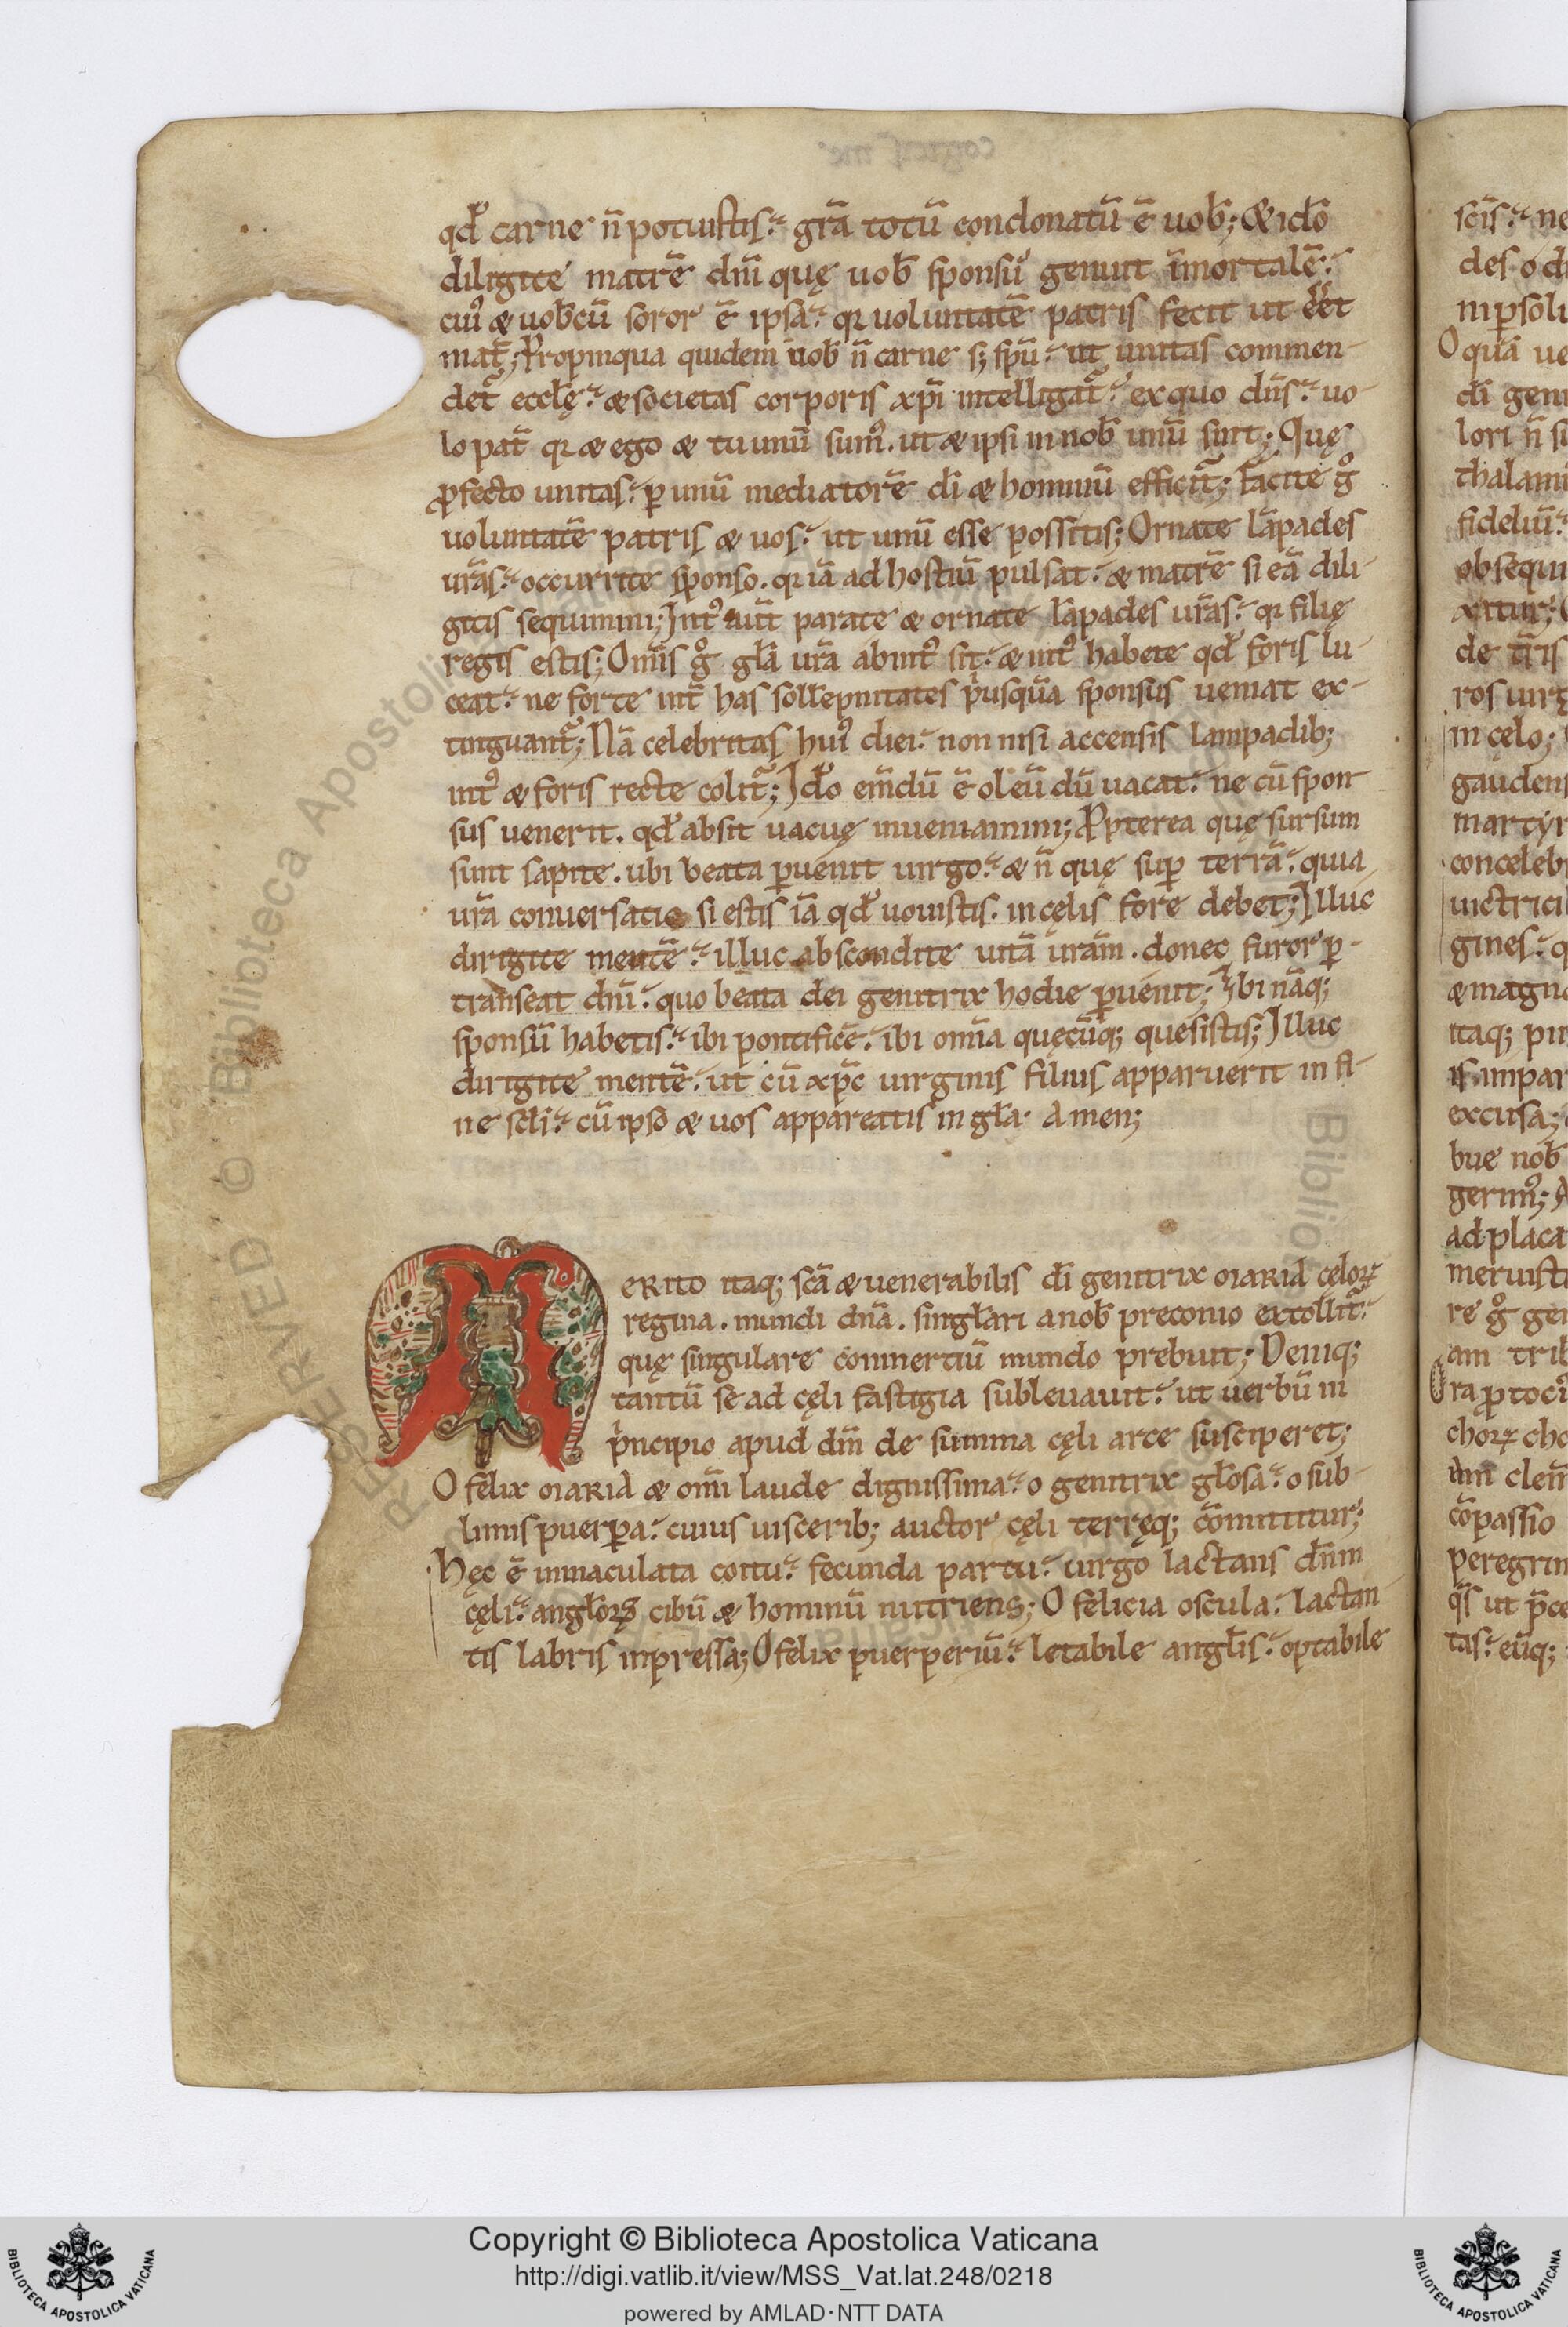 qd̓ carne n̄ potuistis. gr̄a totū condonatū ē uob̄; & idō
diligite matrē dn̄i quę uob̄ sponsū genuit īmortalē.
cui᾽ & uob̄cū soror ē ipsa. qr uoluntatē patris fecit ut eēt
mat̄; Propinqua quidem uob̄ n̄ carne s; sp̄u. ut unitas commen-
det᷑ eccl̄ę. & societas corporis xp̄i intelligat᷑. ex quo dn̄s. uo-
lo pat̄ qr & ego & tu unū sum᾽. ut & ipsi in nob̄ unū sint; Quę
ꝓfecto unitas. ꝑ unū mediatorē dī & hominū efficit᷑; Facite gͦ
uoluntatē patris & uos. ut unū esse possitis; Ornate lāpades
ur̄as. occurrite sponso. qr iā ad hostiū pulsat. & matrē si eā dili-
gitis sequimini; Int᾽ aut̄ parate & ornate lāpades ur̄as. qr filię
regis estis; Om̄is gͦ gl̄a ur̄a ab int᾽ sit. & int᾽ habete qd̓ foris lu-
ceat. ne forte int̄ has sollēpnitates p̄usquā sponsus ueniat ex-
tinguant᷑; Nā celebritas hui᾽ diei. non nisi accensis lampadib;
int᾽ & foris recte colit᷑; Idō em̄dū ē oleū dū uacat. ne cū spon
sus uenerit. qd̓ absit uacuę inueniamini; Ꝓpterea quę sursum
sunt sapite. ubi beata ꝑuenit uirgo. & n̄ quę suꝑ terrā. quia
ur̄a conuersatio si estis iā qd̓ uouistis. in cęlis fore debet; Illuc
dirigite mentē. illuc abscondite uitā ur̄am. donec furor ꝑ-
transeat dn̄i. quo beata dei genitrix hodie ꝑuenit; Ibi nāq;
sponsū habetis. ibi pontificē. ibi om̄ia quęcūq; quesistis; Illuc
dirigite mentē. ut cū xp̄c uirginis filius apparuerit in fi-
ne scl̄i. cū ipso & uos appareatis in gl̄a. Amen;
MERITO itaq; sc̄a & uenerabilis dī genitrix MARIA cęloꝝ
regina. mundi dn̄a. singl̄ari a nob̄ preconio extollit᷑.
quę singulare cōmertiū mundo prebuit; Deniq;
tantū se ad cęli fastigia subleuauit. ut uerbū in
p̄ncipio apud dm̄ de summa cęli arce susciperet;
O felix MARIA & om̄i laude dignissima. o genitrix gl̄osa. o sub-
limis puerꝑa. cuius uiscerib; auctor cęli terręq; cōmittitur;
Hęc ē inmaculata coitu. fecunda partu. uirgo lactans dn̄m
cęli. angl̄oꝝ cibū & hominū nutriens; O felicia oscula. lactan
tis labris inpressa; O felix puerperiū. letabile angl̄is. optabile
Copyright © Biblioteca Apostolica Vaticana
http://digi.vatlib.it/view/MSS_Vat.lat.248/0218
powered by AMLAD·NTT DATA